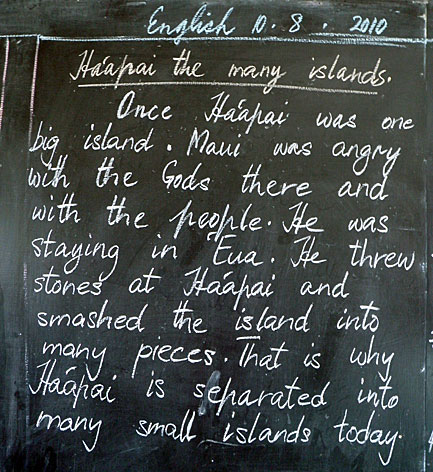 English 10. 8. 2010
Ha'apai the many islands.
Once Ha'apai was one
big island. Maui was angry
with the Gods there and
with the people. He was
staying in 'Eua. He threw
stones at Ha'apai and
smashed the island into
many pieces. That is why
Ha'apai is separated into
many small islands today.